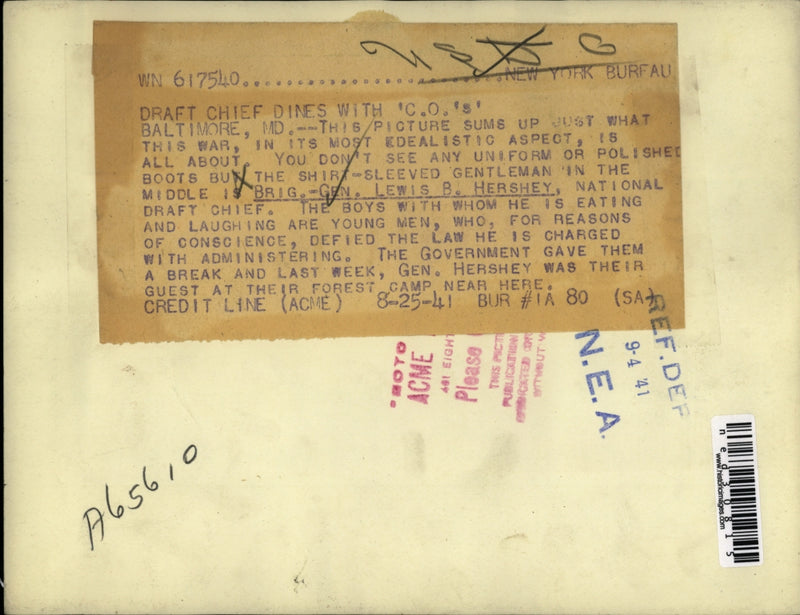 WN 617540................................NEW YORK BUREAU
DRAFT CHIEF DINES WITH 'C.O.'s'
BALTIMORE, MD.--THIS PICTURE SUMS UP JUST WHAT
THIS WAR, IN ITS MOST EDEALISTIC ASPECT, IS
ALL ABOUT. YOU DON'T SEE ANY UNIFORM OR POLISHED
BOOTS BUT THE SHIRT-SLEEVED GENTLEMAN IN THE
MIDDLE IS BRIG.-GEN. LEWIS B. HERSHEY, NATIONAL
DRAFT CHIEF. THE BOYS WITH WHOM HE IS EATING
AND LAUGHING ARE YOUNG MEN, WHO, FOR REASONS
OF CONSCIENCE, DEFIED THE LAW HE IS CHARGED
WITH ADMINISTERING. THE GOVERNMENT GAVE THEM
A BREAK AND LAST WEEK, GEN. HERSHEY WAS THEIR
GUEST AT THEIR FOREST CAMP NEAR HERE.
CREDIT LINE (ACME) 8-25-41 BUR #1A 80 (SA
PHOTO
ACME
461 EIGHT
Please
THIS PICT
PUBLICATION
WITHOUT
N.E.A.
9-4 '41
REF. DEP
A65610
ned30815
www.historicimages.com